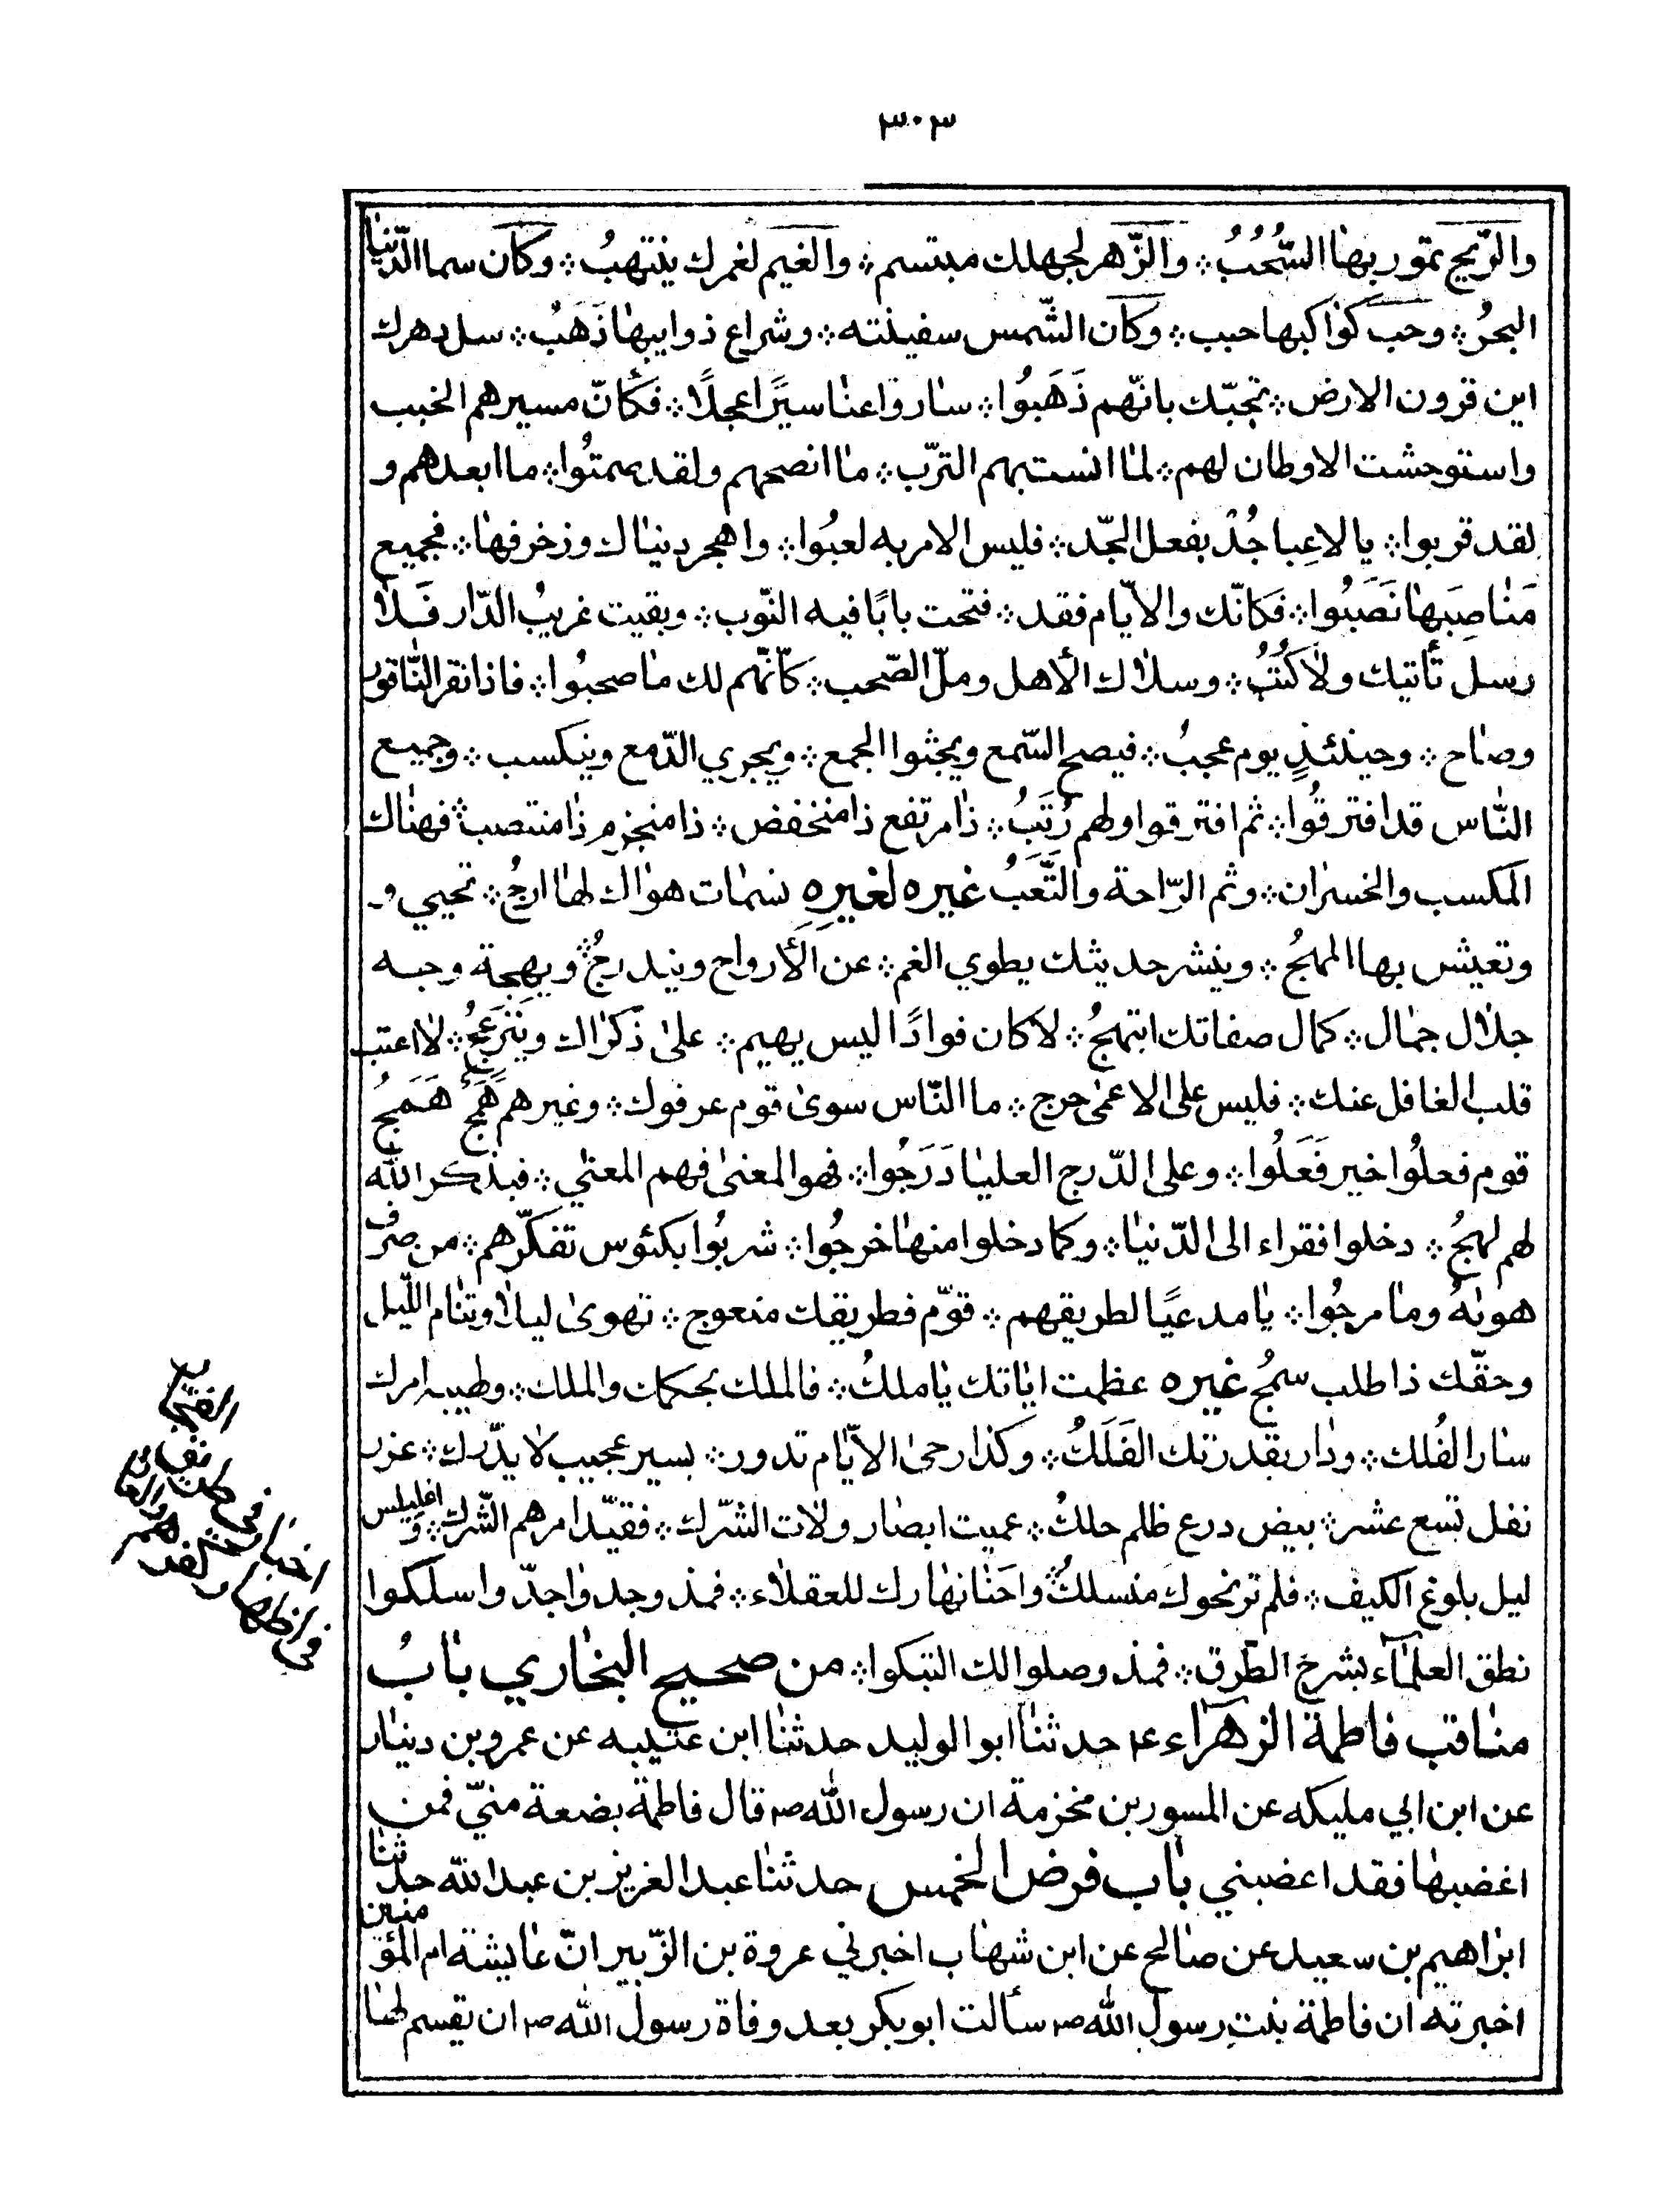 ٣٠٣
والرّيح تمور بهٰا السُّحُبُ ؞ والزّهر لجهلك مبتسم ؞ والغيم لغمرك ينتهبُ ؞ وكأن سما الدّنيٰا
البحرُ ؞ وحب كوٰاكبها حبب ؞ وكأن الشّمس سفينته ؞ وشراع ذوايبهٰا ذَهَبُ ؞ سل دهرك
اين قرون الارض ؞ تجبّك بانّهم ذَهَبُوا ؞ سٰاروٰا عنٰا سيرًا عجلًا ؞ فكأنّ مسيرهم الخبب
واستوحشت الاوطان لهم ؞ لمٰا انست بهم الترّب ؞ مٰا انصحهم ولقد صمتُوا ؞ ما ابعدهم و
لقد قربوا ؞ يا لاعِبا جُدْ بفعل الجّد ؞ فليس الامر به لعبُوا ؞ واهجر دينٰاك وزخرفهٰا ؞ فجميع
مَنٰاصِبهٰا نَصَبُوا ؞ فكانّك والايّام فقد ؞ فتحت بابًا فيه النّوب ؞ وبقيت غريبُ الدّار فَلاٰ
رسل تأتيك ولاٰ كُتُبُ ؞ وسلاٰك الأهل وملّ الصّحب ؞ كأنّهم لك مٰا صحبُوا ؞ فاذا نقر النّٰاقور
وصٰاح ؞ وحينئذٍ يوم عجبُ ؞ فيصح السّمع ويجثوا الجمع ؞ ويجري الدّمع وينكسب ؞ وجميع
النّٰاس قد افترقُوا ؞ ثم افترقوا ولهم رُتَبُ ؞ ذٰا مرتفع ذا منخفض ؞ ذا منجزم ذٰا منتصب ؞ فهنٰاك
المكسب والخسرٰان ؞ وثم الرّاحة والتَّعَبُ غيره لغيرهِ نسمٰات هوٰاك لهٰا ارجُ ؞ تحيي و
وتعيش بها المهجُ ؞ وينشر حديثك يطوي الغم ؞ عن الأرواح ويندرجُ ؞ وبهجة وجه
جلاٰل جمٰال ؞ كمال صفاتك ابتهجُ ؞ لا كان فوادًا ليس يهيم ؞ علىٰ ذكرٰاك وينزعجُ ؞ لاٰ اعتب
قلب الغافل عنك ؞ فليس على الاعمىٰ حرج ؞ ما النّاس سوىٰ قوم عرفوك ؞ وغيرهم هَمَجٌ هَمَجُ
قوم فعلُوا خير فَعَلُوا ؞ وعلى الدّرج العليٰا دَرَجُوا ؞ فهو المعنىٰ فهم المعنىٰ ؞ فبذكر اللّٰه
لهم لهجُ ؞ دخلوا فقراء الى الدّنيٰا ؞ وكما دخلوا منهٰا خرجُوا ؞ شربُوا بكئوس تفكّرهم ؞ من صرف
هوٰيهُ ومٰا مرجُوا ؞ يٰا مدعيًا لطريقهم ؞ قوّم فطريقك منعوج ؞ تهوىٰ ليلاٰ وتنٰام اللّيل
وحقّك ذا طلب سمُج غيره عظمت ايٰاتك يٰا ملكُ ؞ فالملك بحكمك والملك ؞ وطيبه امرك
سٰار الفُلك ؞ ودٰار بقدرتك الفَلَكُ ؞ وكذا رحىٰ الايّام تدور ؞ بسير عجيب لا يدّرك ؞ عزر
نفل تسع عشر ؞ بيض درع ظلم حلكُ ؞ عميت ابصٰار ولاٰت الشّرك ؞ فقيّد امرهم الشّرك ؞ وافليلس
ليل بلوغ الكيف ؞ فلم تر نحوك منسلكُ ؞ واحَنٰا نهٰارك للعقلاٰء ؞ فمذ وجدوٰا جدّ واسلكوا
نطق العلمٰآء بشرح الطّرق ؞ فمذ وصلوا لك التبكوا ؞ من صحيح البخاري بٰابُ
منٰاقب فٰاطمة الزهرٰاء ع حدثنٰا ابو الوليد حدثنٰا ابن عتيبه عن عمرو بن دينٰار
عن ابن ابي مليكه عن المسور بن مخزمة ان رسول اللّٰه ص قال فاطمة بضعة منيّ فمن
اغضبهٰا فقد اغضبني بٰاب فرض الخمس حدثنٰا عبد العزيز بن عبد اللّٰه حدثنٰا
ابرٰاهيم بن سعيد عن صٰالح عن ابن شهٰاب اخبرني عروة بن الزّبير انّ عٰايشة ام المؤمنين
اخبرته ان فاطمة بنت رسول اللّٰه ص سألت ابو بكر بعد وفاة رسول اللّٰه ص ان يقسم لهٰا